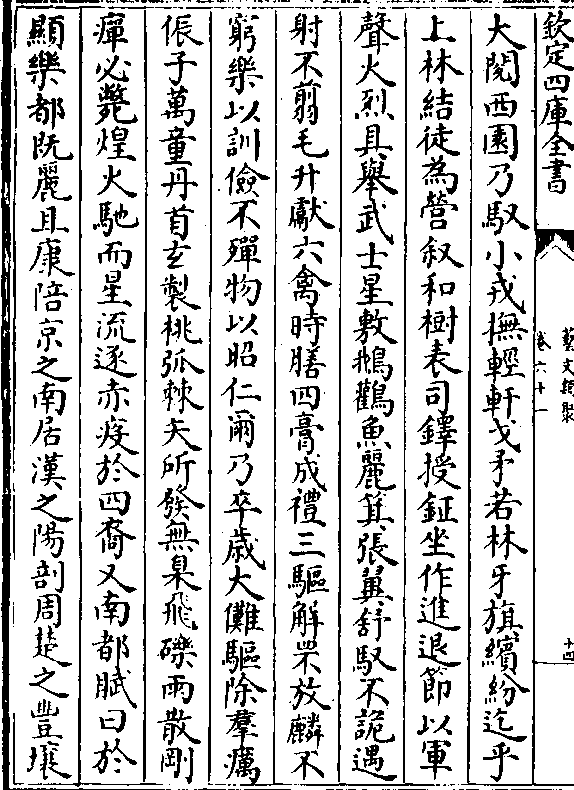 欽定四庫全書
藝文類聚
卷六十一
十四
大閱西園乃馭小戎撫輕軒戈矛若林牙旗繽紛迄乎
上林結徒為營叙和樹表司鐸授鉦坐作進退節以軍
聲火烈具舉武士星敷鵝鸛魚麗箕張翼舒馭不詭遇
射不翦毛升獻六禽時膳四膏成禮三驅解罘放麟不
窮樂以訓儉不殫物以昭仁爾乃卒歲大儺驅除羣癘
侲子萬童丹首玄製桃弧棘矢所發無臬飛礫雨散剛
癉必斃煌火馳而星流逐赤疫於四裔又南都賦曰於
顯樂都既麗且康陪京之南居漢之陽剖周楚之豐壤